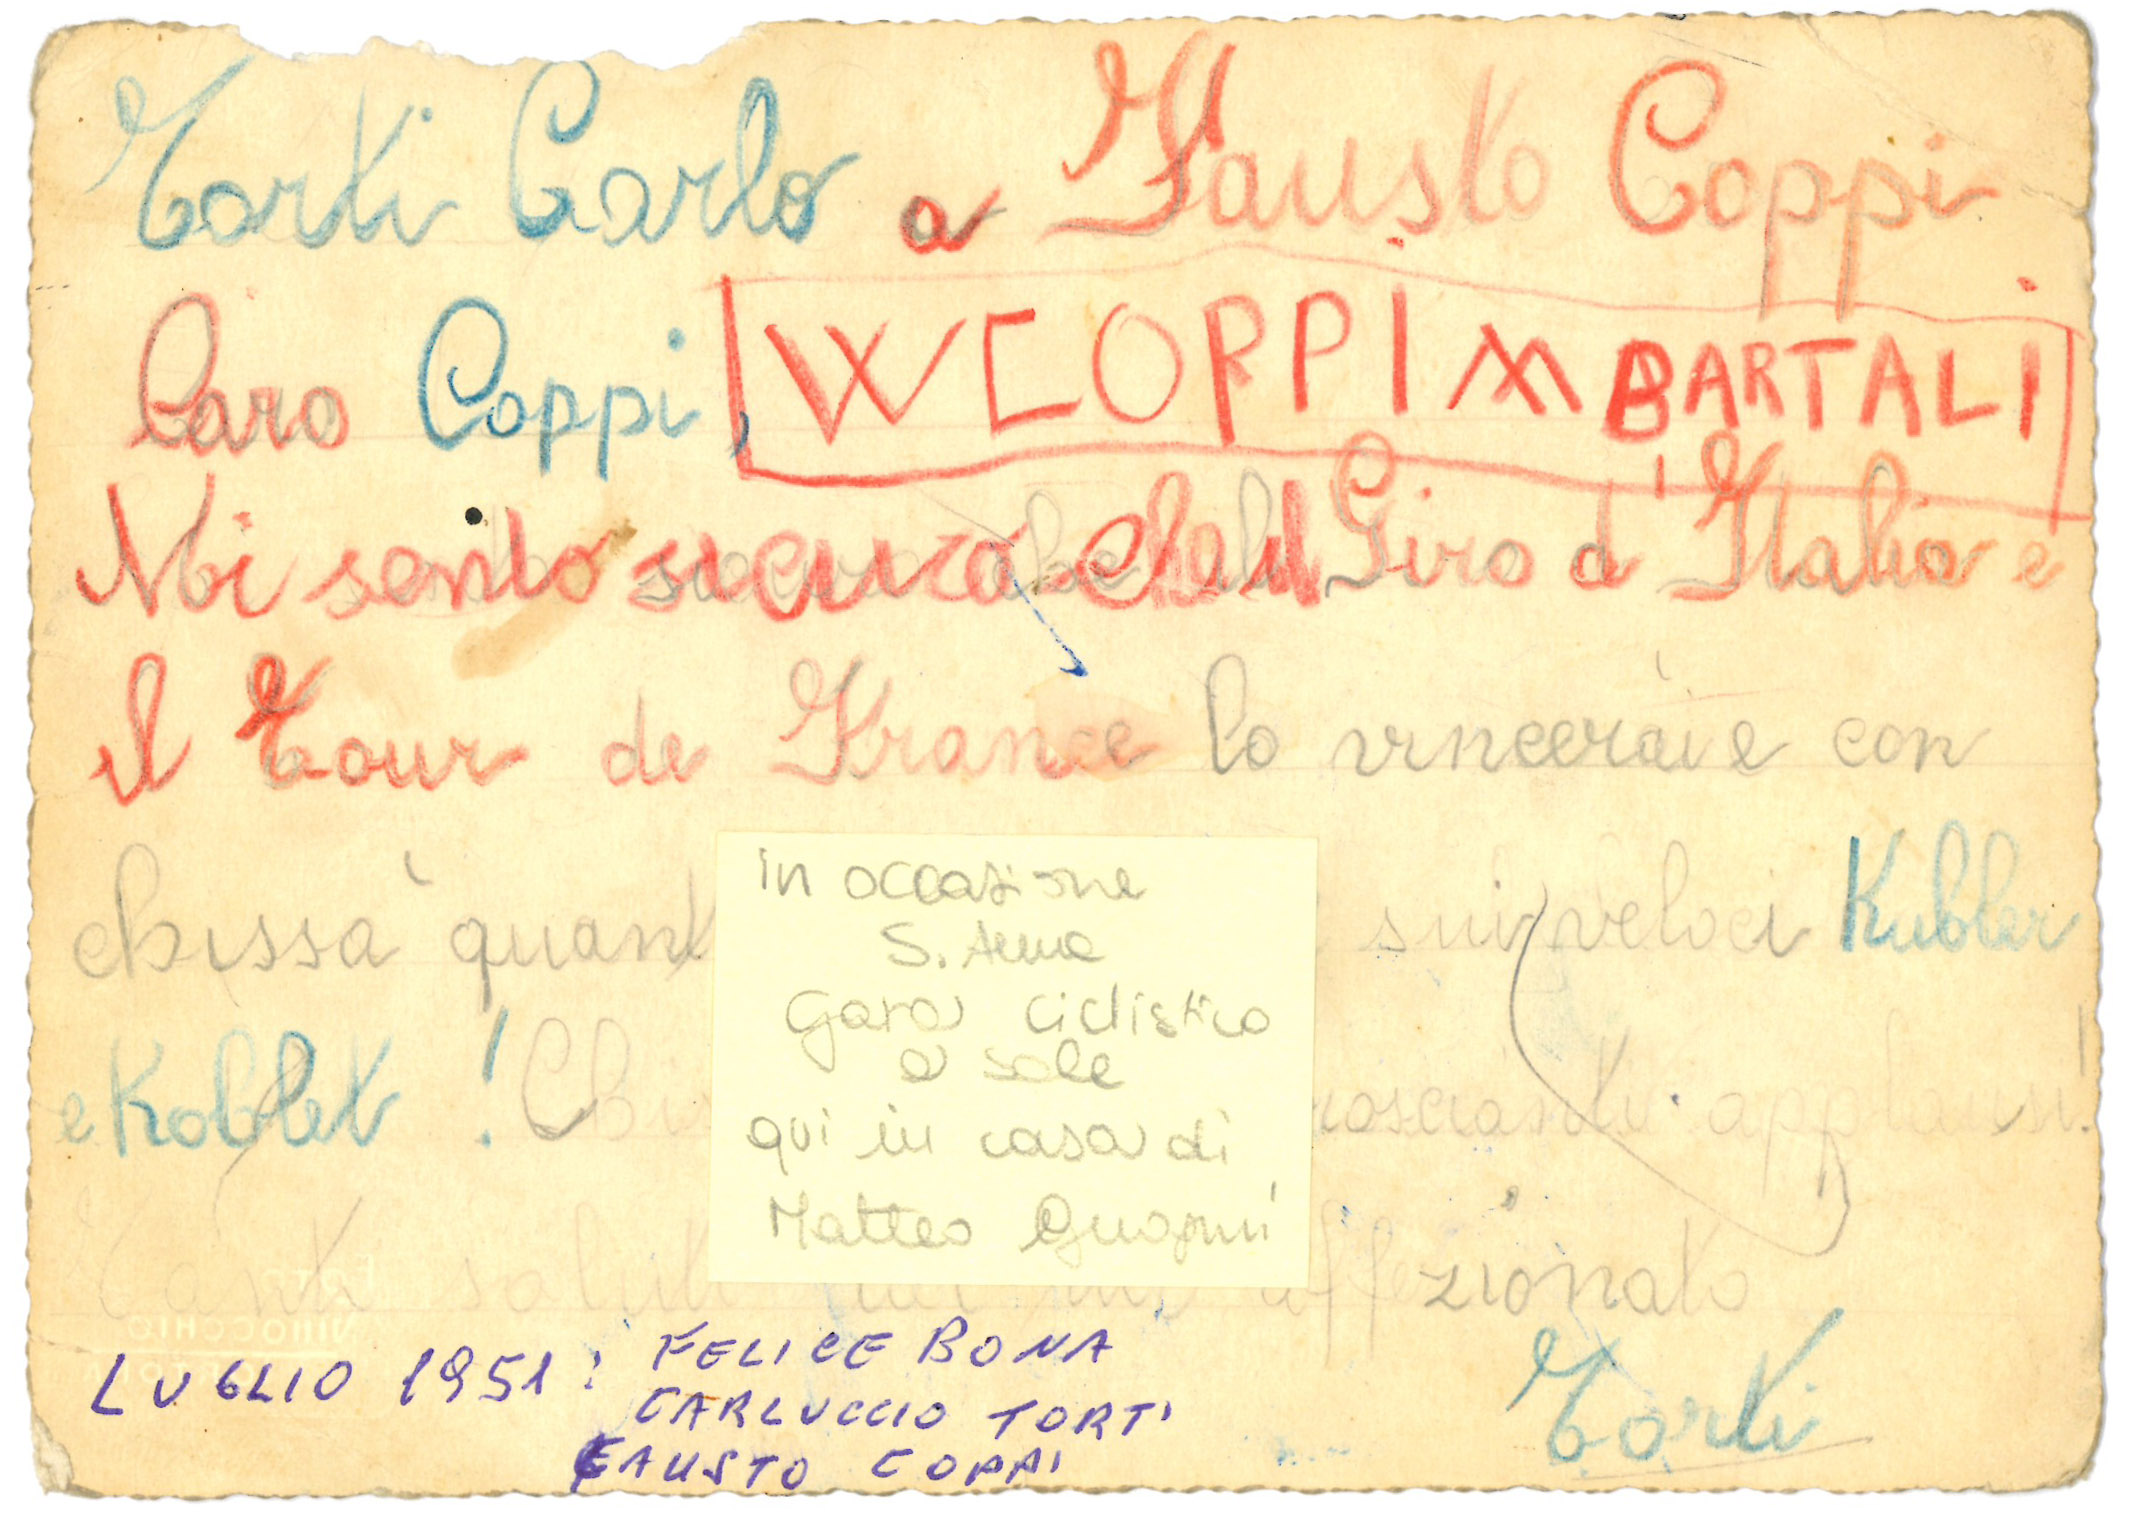 Torti Carlo a Fausto Coppi
Caro Coppi, W COPPI M BARTALI
Mi sento sicuro che il Giro d'Italia e
il Tour de France lo vincerai e con
chissà quant sui veloci Kubler
e Koblet! Chi roscianti applausi!
Tanti saluti affezionato
Torti
in occasione
S. Anna
Gara ciclistica
a sale
qui in casa di
Matteo
LUGLIO 1951: FELICE BONA
CARLUCCIO TORTI
FAUSTO COPPI
FOTO